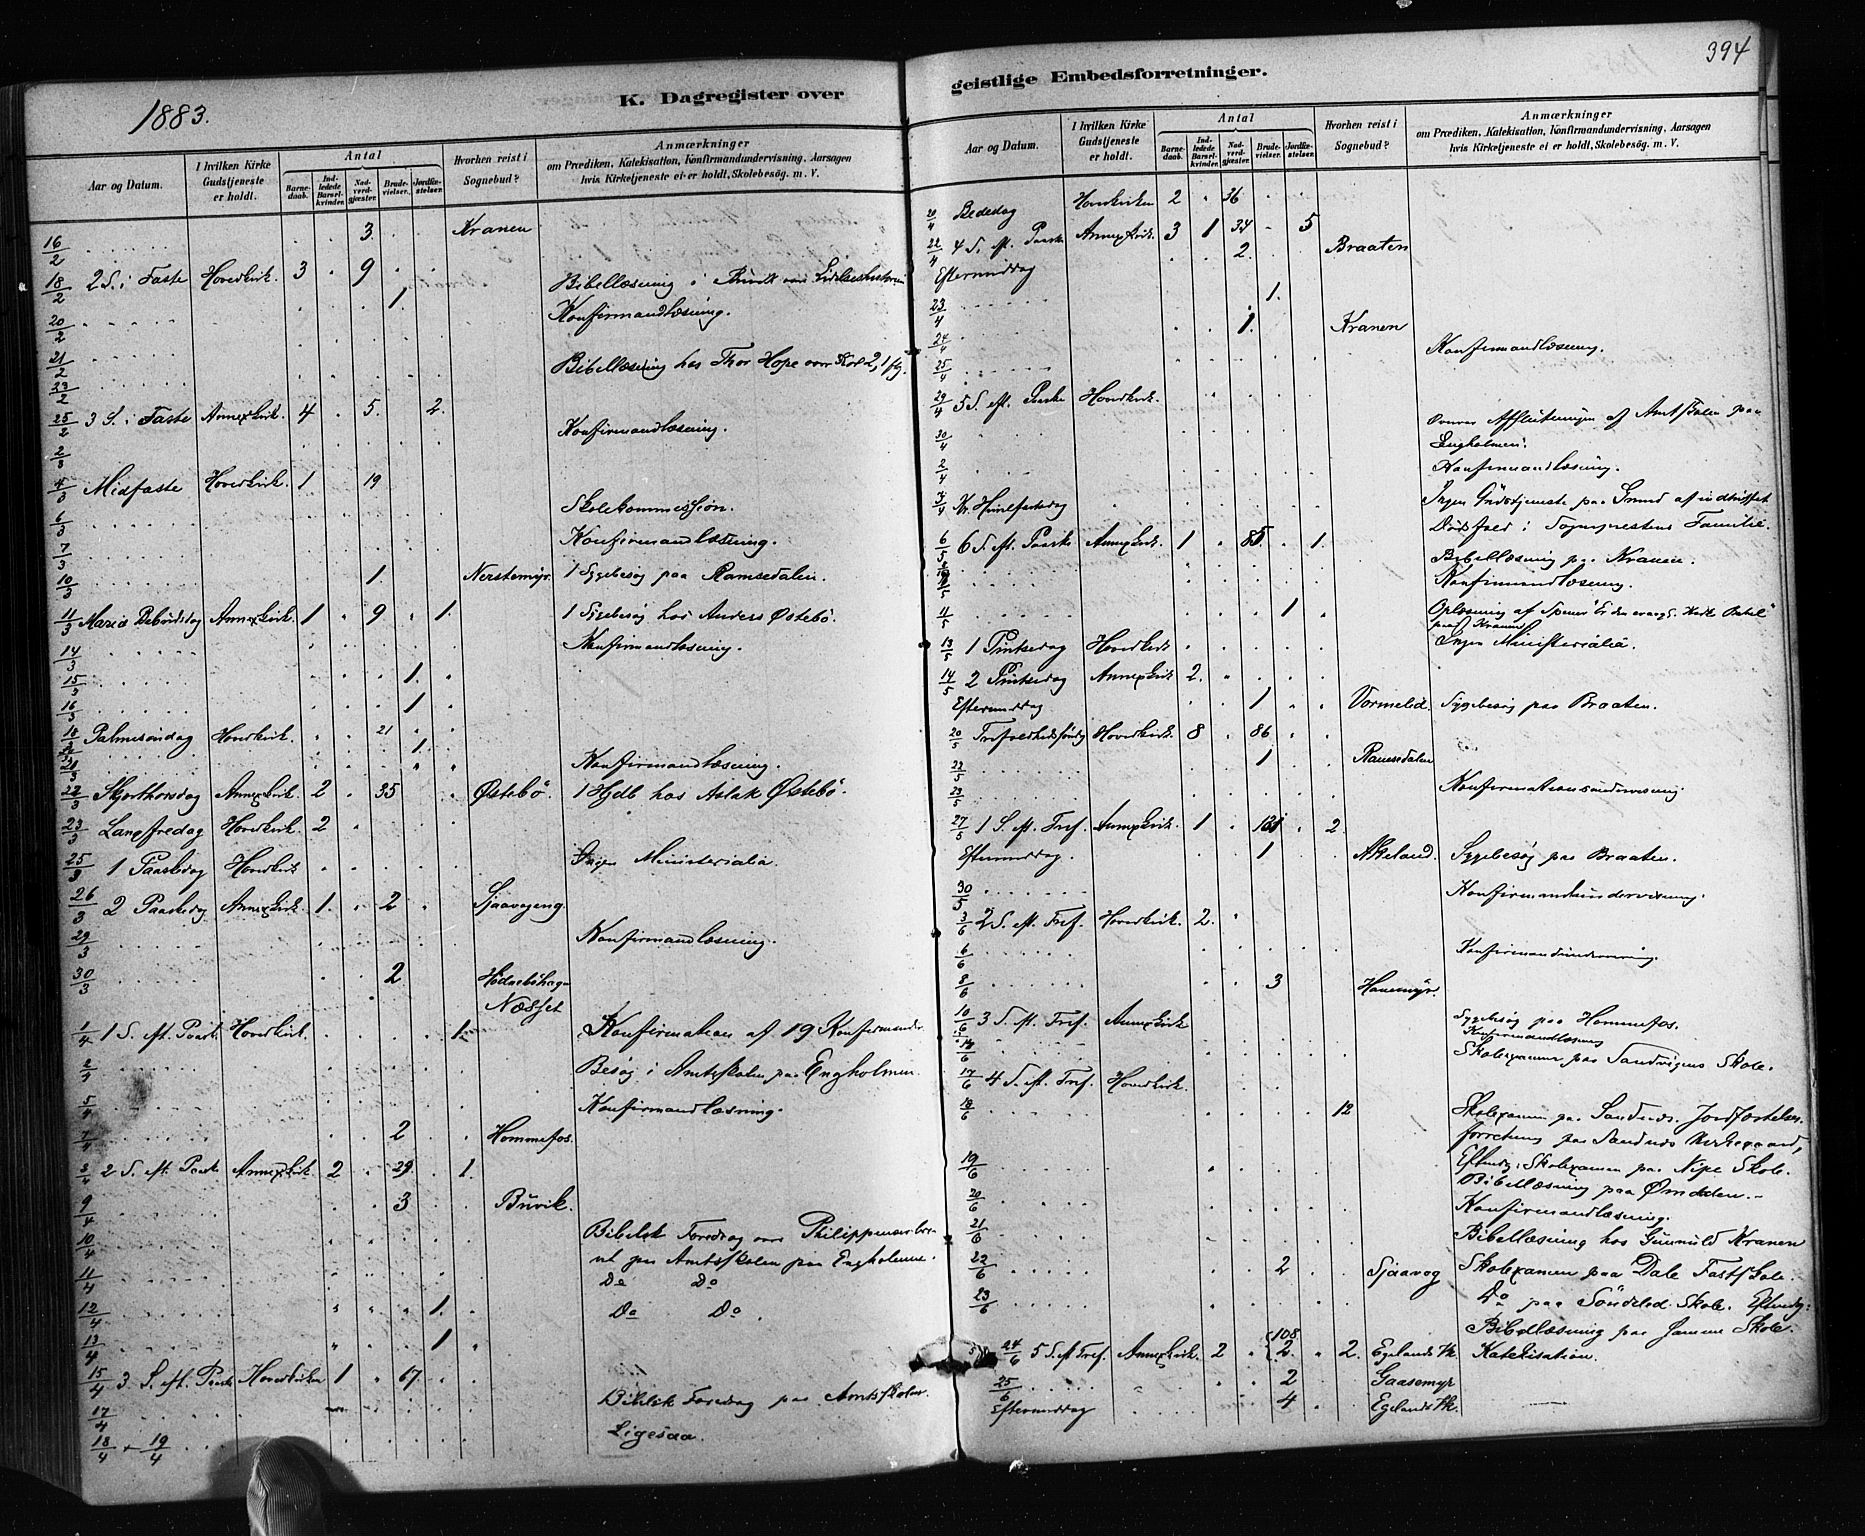 1883.
K. Dagregister over
Aar og Datum. I hvilken Kirke Gudstjeneste er holdt. Antal Barnedaab. Indledede Barselkvinder. Nadverdgjæster. Brudevielser. Jordfæstelser. Hvorhen reist i Sognebud? Anmærkninger om Prædiken, Katekisation, Konfirmandundervisning, Aarsagen hvis Kirketjeneste ei er holdt, Skolebesøg. m. V.
16/2 3 Kranen
18/2 2 S. i Faste Hovedkirk. 3 9 Bibellæsning i
20/2 1. Konfirmandlæsning.
21/2
23/2 Bibellæsning hos Thor Hope over
25/2 3 S. i Faste Annexkirk. 4 5 2.
2/3 Konfirmandlæsning.
4/3 Midfaste Hovedkirk. 1 19
6/3 Skolekommission.
7/3 Konfirmandlæsning.
10/3 1 Nerstemyr. 1 Sygebesøg paa Ramsedalen.
11/3 Mariæ Bebudelsdag Annexkirk. 1 9 1. 1 Sygebesøg hos Anders Østebö.
14/3 Konfirmandlæsning.
15/3 1.
16/3 1
18/3 Palmesöndag Hovedkirk. 21
1.
21/3 Konfirmandlæsning.
22/3 Skjærthorsdag Annexkirk. 2 35 Østebö. 1 Hjdb hos Aslak Østebö.
23/3 Langfredag Hovedkirk. 2
25/3 1 Paaskedag Hovedkirk Ingen Ministerialia.
26/3 2 Paaskedag Annexkirk. 1. 2 Sjaavogeng
29/3 Konfirmandlæsning.
30/3 2
Næsset
1/4 1 S. eft. Paaske Hovedkirk. 1. Konfirmation af 19 Konfirmander.
2/4 Besög i Amtsskolen paa Engholmen.
5/4 Konfirmandlæsning.
7/4 2 Hommefos.
8/4 2 S. eft. Paaske Annexkirk 2 29. 1.
9/4 3 Buvik.
10/4 Bibelsk Foredrag over Philippenserbrevet paa Amtsskolen paa Engholmen.
11/4 Do Do
12/4 1. Do Do
13/4 1
15/4 3 S. eft. Paaske Hovedkirken 1 67
17/4 Bibelsk Foredrag paa Amtsskolen.
18/4 + 19/4 Ligesaa.
394
geistlige Embedsforretninger.
Aar og Datum. I hvilken Kirke Gudstjeneste er holdt. Antal Barnedaab. Indledede Barselkvinder. Nadverdgjæster. Brudevielser. Jordfæstelser. Hvorhen reist i Sognebud? Anmærkninger om Prædiken, Katekisation, Konfirmandundervisning, Aarsagen hvis Kirketjeneste ei er holdt, Skolebesøg. m. V.
20/4 Bededag Hovedkirken 2 36
22/4 4 S. eft. Paaske Annexkirk. 3 1 34 5
Eftermiddag 2. Braaten
23/4 1.
24/4 1. Kranen
25/4 Konfirmandlæsning.
29/4 5 S. eft. Paaske Hovedkirk.
30/4 Overvar Afslutningen af Amtsskolen paa
Engholmen.
2/4 Konfirmandlæsning.
3/4 Kr. Himmelfartsdag Ingen Gudstjeneste paa Grund af indtruffet
Dødsfald i Sognepræstens Familie.
6/5 6 S. eft. Paaske Annexkirk. 1 85. 1.
Bibellæsning paa Kranen.
Konfirmandlæsning.
11/5 1 Oplæsning af
paa Kranen
13/5 1 Pintsedag Hovedkirk Ingen Ministerialia.
14/5 2 Pintsedag Annexkirk 2.
Eftermiddag 1 Vormelid. Sygebesøg paa Braaten.
20/5 Trefoldhedssöndag Hovedkirk. 8 86
22/5 1 Ramsedalen
23/5 Konfirmationsundervisning.
27/5 1 S. eft. Tref. Annexkirk. 1 131 2.
Eftermiddag. 1 Akeland. Sygebesøg paa Braaten.
30/5 Konfirmandundervisning.
3/6 2 S. eft. Tref. Hovedkirk. 2.
6/6 Konfirmandundervisning.
8/6 3 Hanemyr.
10/6 3 S. eft. Tref. Annexkirk Sygebesøg paa Hommefos.
Konfirmandlæsning
14/6 Skolexamen paa Sandvigens Skole.
17/6 4 S. eft. Tref. Hovedkirk.
18/6 12 Skolexamen paa Sandnæs. Jordfæstelses-
forretning paa Sandnæs Kirkegaard,
19/6 Eftmdg: Skolexamen paa Nipe Skole.
Bibellæsning paa Ømdalen.
20/6 Konfirmandlæsning.
21/6 Bibellæsning hos Gunnuld Kranen
22/6 2 Sjaavog Skolexamen paa Dale Fastskole.
23/6 Do paa Söndeled Skole. Eftmdg:
Bibellæsning paa Jamme Skole.
24/6 5 S. eft Tref. Annexkirk. 2 108 2. 2. Egelands Vk. Katekisation.
25/6 2 Gaasemyr
Eftermiddag 4 Egelands Vk.